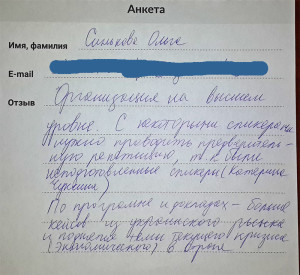 Анкета
Имя, фамилия Синькова Ольга
E-mail
Отзыв Организация на высшем
уровне. С некоторыми спикерами
нужно проводить предваритель-
ную репетицию, т.к. были
неподготовленные спикеры (Катерина
По программе и докладах - больше
кейсов из украинского рынка
и поднятие темы текущего кризиса
(экономического) в